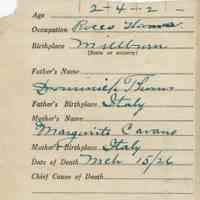 Age 2-4-2-
Occupation
Birthplace Millburn
(State or country)
Father's Name
Dominick
Father's Birthplace Italy
Mother's Name
Margurite Cavano
Mother's Birthplace Italy
Date of Death Mch 15/26
Chief Cause of Death